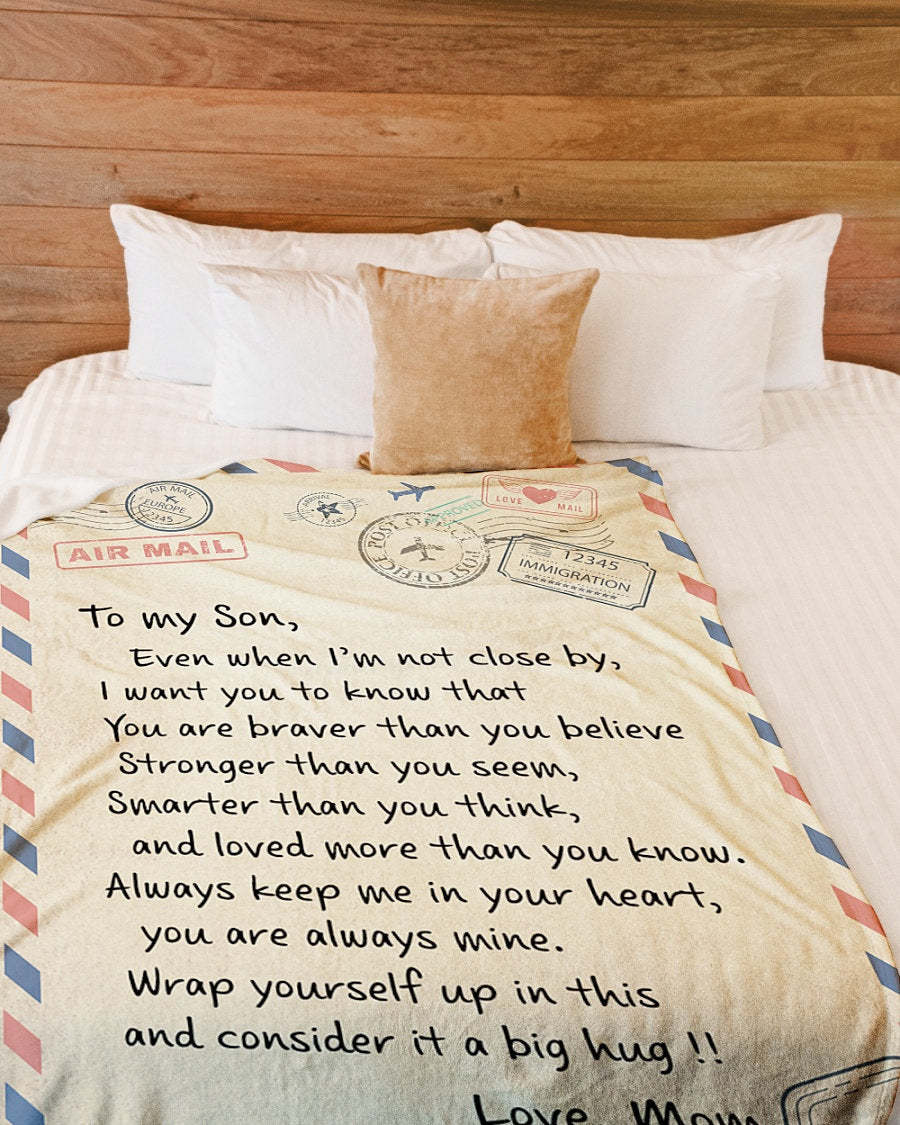 AIR MAIL
EUROPE
12345
ARRIVAL
12345
LOVE MAIL
POST OFFICE POST OFFICE
12345
IMMIGRATION
AIR MAIL
To my Son,
Even when I'm not close by,
I want you to know that
You are braver than you believe
Stronger than you seem,
Smarter than you think,
and loved more than you know.
Always keep me in your heart,
you are always mine.
Wrap yourself up in this
and consider it a big hug !!
Love, Mom